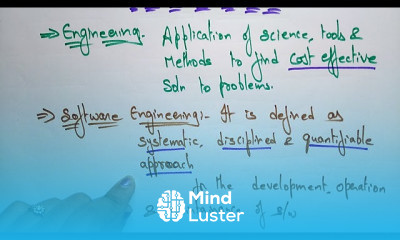 ⇒ Engineering. Application of science, tools &
Methods to find cost effective
Soln to problems.
⇒ Software Engineering:- It is defined as
systematic, disciplined & quantifiable
approach
to the development, operation
& of s/w
Mind
Luster